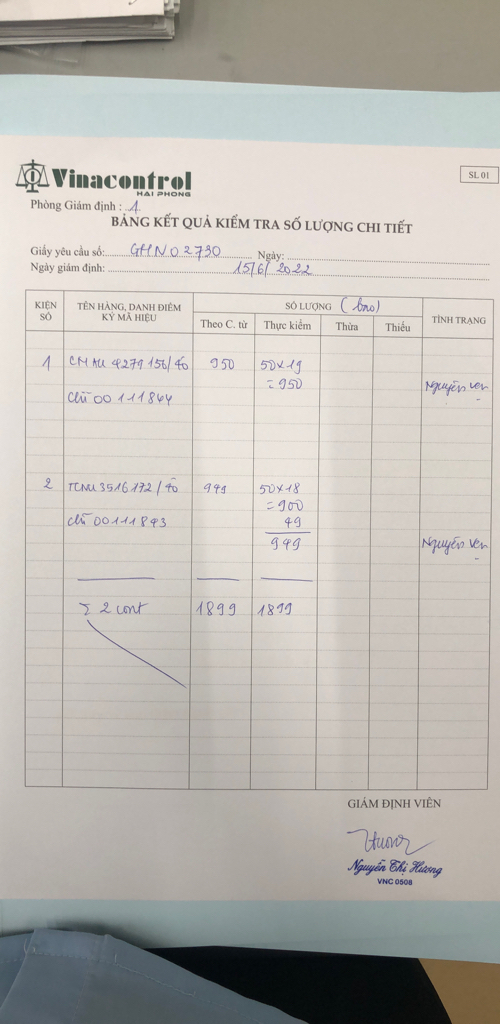 Vinacontrol
HAI PHONG
SL 01
Phòng Giám định : 1
BẢNG KẾT QUẢ KIỂM TRA SỐ LƯỢNG CHI TIẾT
Giấy yêu cầu số: GHN02730 Ngày:
Ngày giám định: 15/6/2022
KIỆN SỐ
TÊN HÀNG, DANH ĐIỂM KÝ MÃ HIỆU
SỐ LƯỢNG (bao)
TÌNH TRẠNG
Theo C. từ Thực kiểm Thừa Thiếu
1 CMAU 4279156/40 950 50x19
= 950 Nguyên vẹn
chì 00111844
2 TCNU3516172/40 949 50x18
= 900
chì 00111843 49
949 Nguyên vẹn
Σ 2 cont 1899 1899
GIÁM ĐỊNH VIÊN
Hương
Nguyễn Thị Hương
VNC 0508